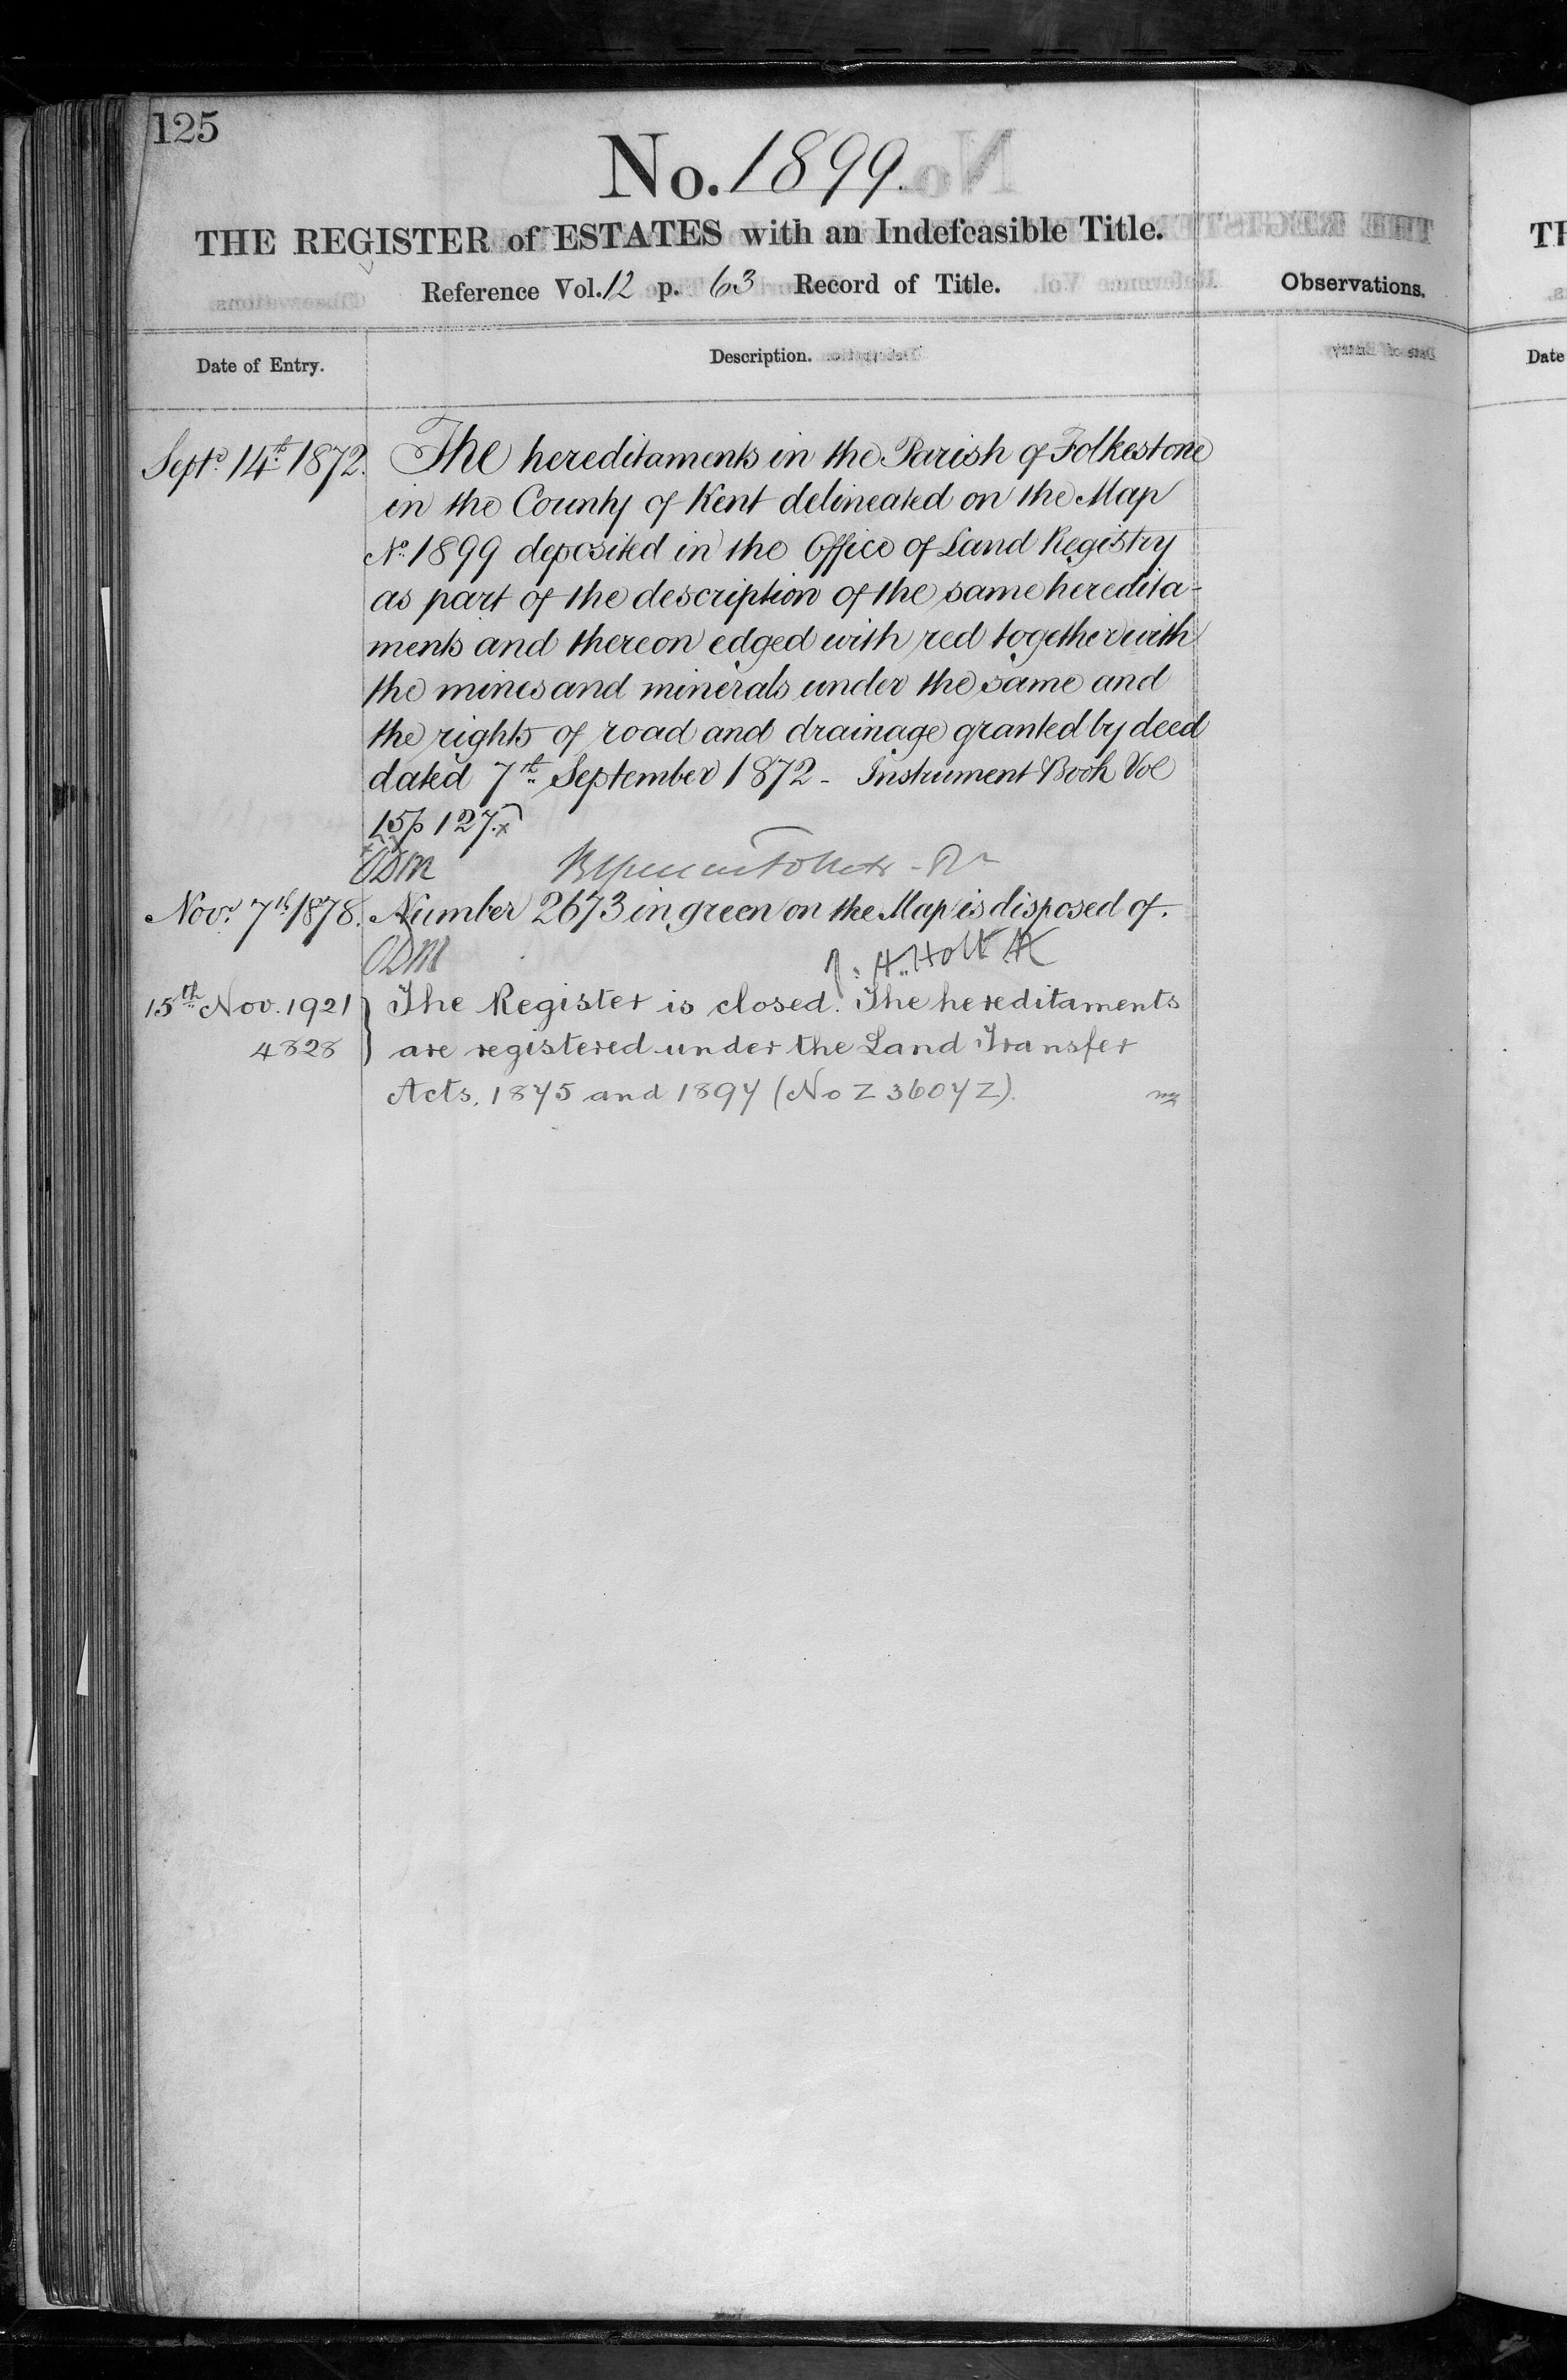 125
No. 1899.
THE REGISTER of ESTATES with an Indefeasible Title.
Reference Vol. 12 p. 63 Record of Title.
Observations.
Date of Entry.
Description.
Septr 14th 1872. The hereditaments in the Parish of Folkestone
in the County of Kent delineated on the Map
No. 1899 deposited in the Office of Land Registry
as part of the description of the same heredita-
ments and thereon edged with red together with
the mines and minerals under the same and
the rights of road and drainage granted by deed
dated 7th September 1872 - Instrument Book Vol
15 p 127. x
ODM
Novr 7th 1878. Number 2673 in green on the Map is disposed of.
ODM
J. H. Holt AR
15th Nov. 1921 } The Register is closed. The hereditaments
4828 are registered under the Land Transfer
Acts, 1875 and 1897 (No Z 3607 Z).
TH
Date